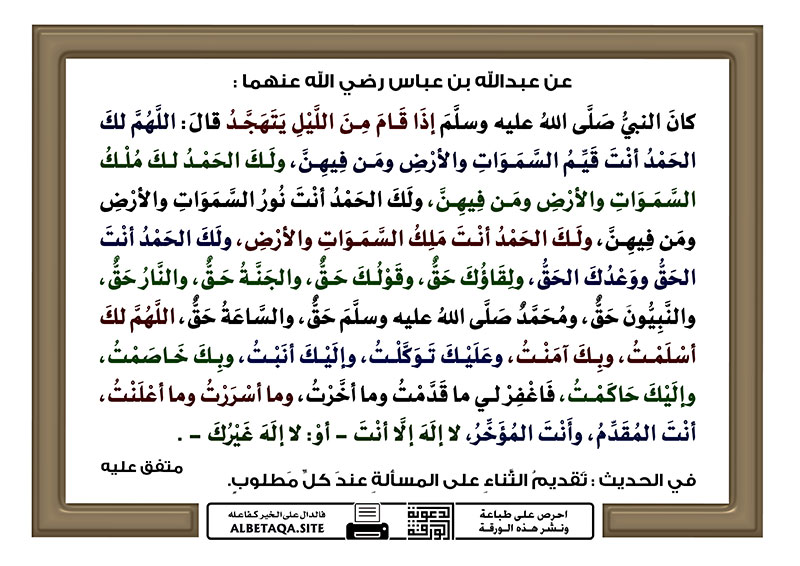 عن عبدالله بن عباس رضي الله عنهما :
كانَ النبيُّ صَلَّى اللهُ عليه وسلَّمَ إذَا قَامَ مِنَ اللَّيْلِ يَتَهَجَّدُ قالَ: اللَّهُمَّ لكَ
الحَمْدُ أنْتَ قَيِّمُ السَّمَوَاتِ والأرْضِ ومَن فِيهِنَّ، ولَكَ الحَمْدُ لكَ مُلْكُ
السَّمَوَاتِ والأرْضِ ومَن فِيهِنَّ، ولَكَ الحَمْدُ أنْتَ نُورُ السَّمَوَاتِ والأرْضِ
ومَن فِيهِنَّ، ولَكَ الحَمْدُ أنْتَ مَلِكُ السَّمَوَاتِ والأرْضِ، ولَكَ الحَمْدُ أنْتَ
الحَقُّ ووَعْدُكَ الحَقُّ، ولِقَاؤُكَ حَقٌّ، وقَوْلُكَ حَقٌّ، والجَنَّةُ حَقٌّ، والنَّارُ حَقٌّ،
والنَّبِيُّونَ حَقٌّ، ومُحَمَّدٌ صَلَّى اللهُ عليه وسلَّمَ حَقٌّ، والسَّاعَةُ حَقٌّ، اللَّهُمَّ لكَ
أسْلَمْتُ، وبِكَ آمَنْتُ، وعَلَيْكَ تَوَكَّلْتُ، وإلَيْكَ أنَبْتُ، وبِكَ خَاصَمْتُ،
وإلَيْكَ حَاكَمْتُ، فَاغْفِرْ لي ما قَدَّمْتُ وما أخَّرْتُ، وما أسْرَرْتُ وما أعْلَنْتُ،
أنْتَ المُقَدِّمُ، وأَنْتَ المُؤَخِّرُ، لا إلَهَ إلَّا أنْتَ – أوْ: لا إلَهَ غَيْرُكَ – .
متفق عليه
في الحديث : تَقديمُ الثَّناءِ على المسألةِ عندَ كلِّ مَطلوبٍ.
احرص على طباعة
ونشر هذه الورقة
لدعوته الورقية
فالدال على الخير كفاعله
ALBETAQA.SITE